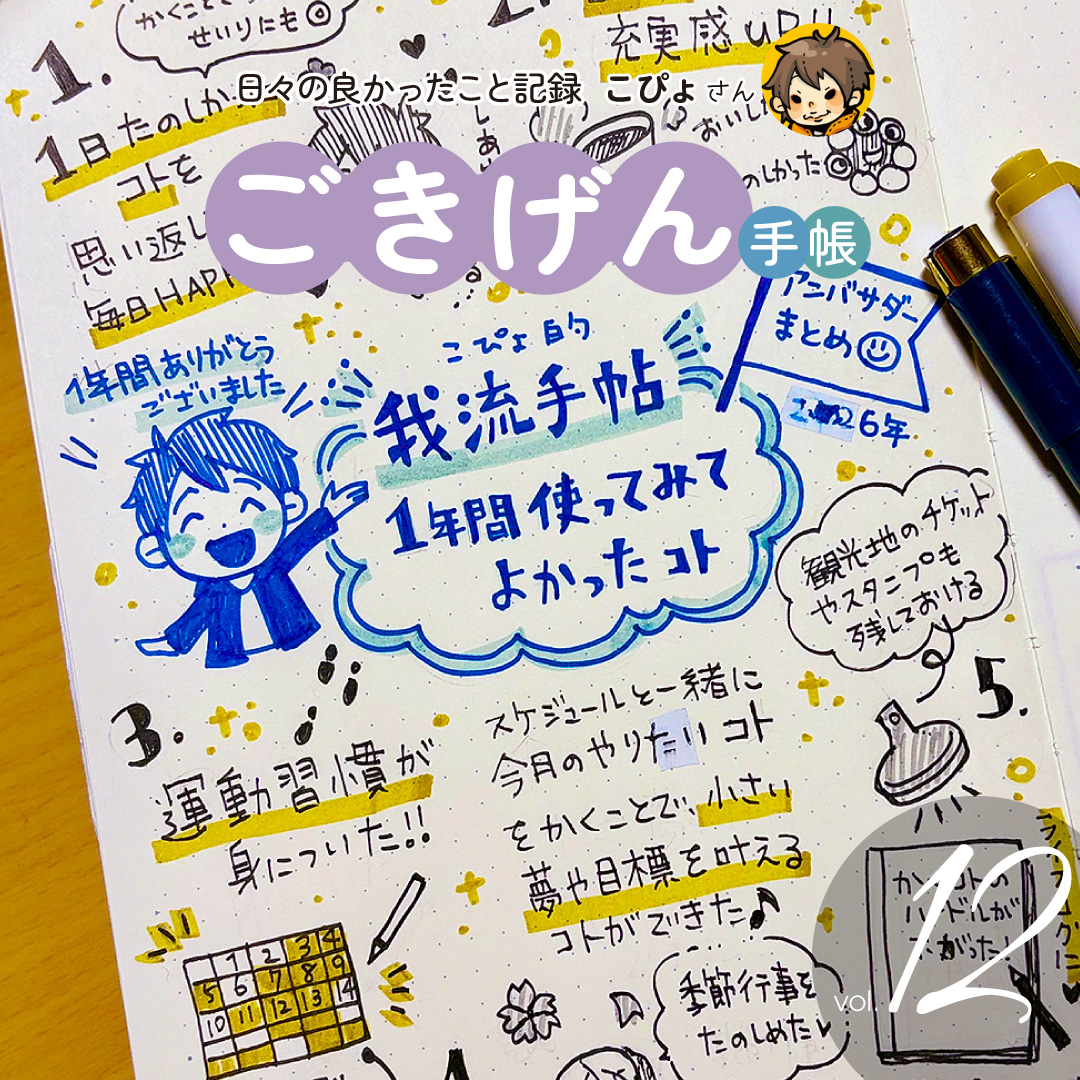 かくことで
せいりにも◎
1.
2.
充実感UP!!
日々の良かったこと記録 こぴょさん
1日たのしかった
コトを
思い返し
毎日HAPP
おいし
のしかった
ごきげん手帳
アンバサダー
まとめ
6年
1年間ありがとう
ございました
こぴょ的
我流手帖
1年間使ってみて
よかったコト
観光地のチケット
やスタンプも
残しておける
3.
運動習慣が
身についた!!
スケジュールと一緒に
今月のやりたいコト
をかくことで、小さい
夢や目標を叶える
コトができた♪
5.
1 2 3 4
5 6 7 8 9
10 11 12 13 14
季節行事を
たのしめた
ハードルが
vol.12